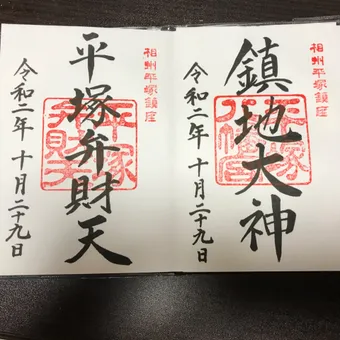 相州平塚鎮座
鎮地大神
令和二年 十月二十九日
相州平塚鎮座
平塚弁財天
令和二年 十月二十九日